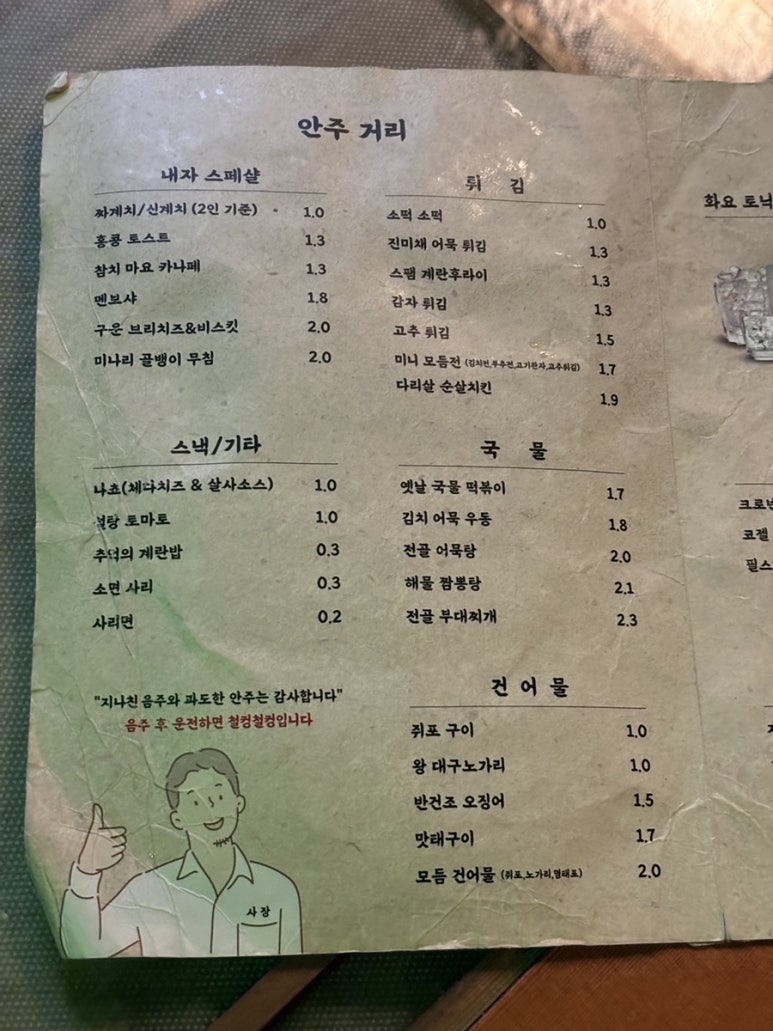 안주 거리
내자 스페샬
짜게치/신계치 (2인 기준) 1.0
홍콩 토스트 1.3
참치 마요 카나페 1.3
멘보샤 1.8
구운 브리치즈&비스킷 2.0
미나리 골뱅이 무침 2.0
스낵/기타
나쵸(체다치즈 & 살사소스) 1.0
설탕 토마토 1.0
추억의 계란밥 0.3
소면 사리 0.3
사리면 0.2
"지나친 음주와 과도한 안주는 감사합니다"
음주 후 운전하면 철컹철컹입니다
사장
튀 김
소떡 소떡 1.0
진미채 어묵 튀김 1.3
스팸 계란후라이 1.3
감자 튀김 1.3
고추 튀김 1.5
미니 모듬전 (김치전,부추전,고기완자,고추튀김) 1.7
다리살 순살치킨 1.9
국 물
옛날 국물 떡볶이 1.7
김치 어묵 우동 1.8
전골 어묵탕 2.0
해물 짬뽕탕 2.1
전골 부대찌개 2.3
건 어 물
쥐포 구이 1.0
왕 대구노가리 1.0
반건조 오징어 1.5
맛태구이 1.7
모듬 건어물 (쥐포,노가리,명태포) 2.0
화요 토닉
크로넨
코젤
필스